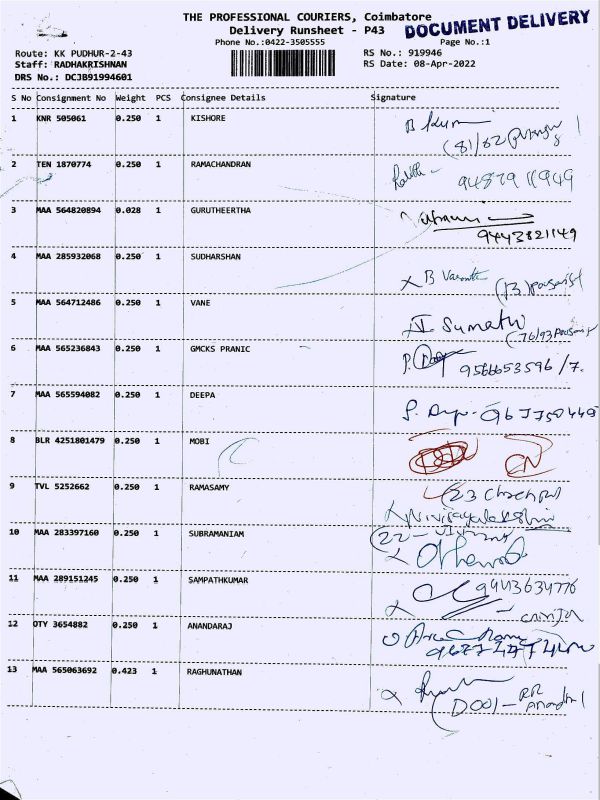 THE PROFESSIONAL COURIERS, Coimbatore
DOCUMENT DELIVERY
Delivery Runsheet - P43
Phone No.:0422-3505555
Page No.:1
Route: KK PUDHUR-2-43
RS No.: 919946
Staff: RADHAKRISHNAN
RS Date: 08-Apr-2022
DRS No.: DCJB91994601
S No Consignment No Weight PCS Consignee Details Signature
1 KNR 505061 0.250 1 KISHORE
2 TEN 1870774 0.250 1 RAMACHANDRAN
9487911949
3 MAA 564820894 0.028 1 GURUTHEERTHA
9443821149
4 MAA 285932068 0.250 1 SUDHARSHAN
5 MAA 564712486 0.250 1 VANE
6 MAA 565236843 0.250 1 GMCKS PRANIC
9566653596 /7.
7 MAA 565594082 0.250 1 DEEPA
8 BLR 4251801479 0.250 1 MOBI
CN
9 TVL 5252662 0.250 1 RAMASAMY
10 MAA 283397160 0.250 1 SUBRAMANIAM
11 MAA 289151245 0.250 1 SAMPATHKUMAR
9443634776
12 OTY 3654882 0.250 1 ANANDARAJ
13 MAA 565063692 0.423 1 RAGHUNATHAN